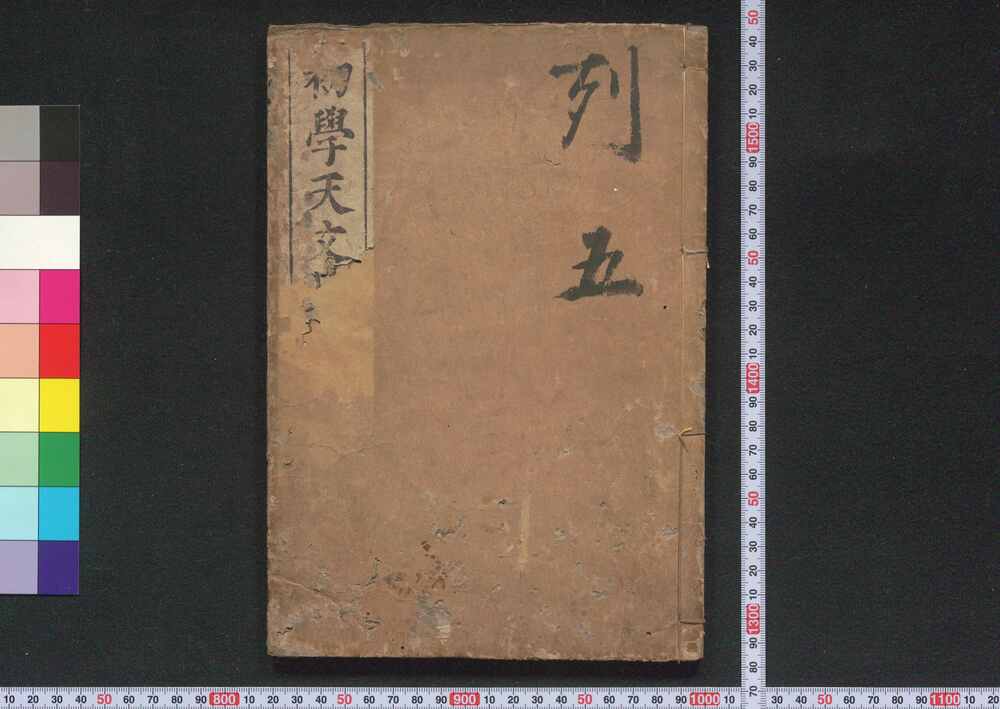 列五
初學天文
10 20 30 40 50 60 70 80 90 800 10 20 30 40 50 60 70 80 90 900 10 20 30 40 50 60 70 80 90 1000 10
20 30 40 50 60 70 80 90 1100 10 20
50 40 30 20 10 1500 90 80 70 60 50 40 30 20 10 1400 90 80 70 60 50 40 30 20 10 1300 90 80 70